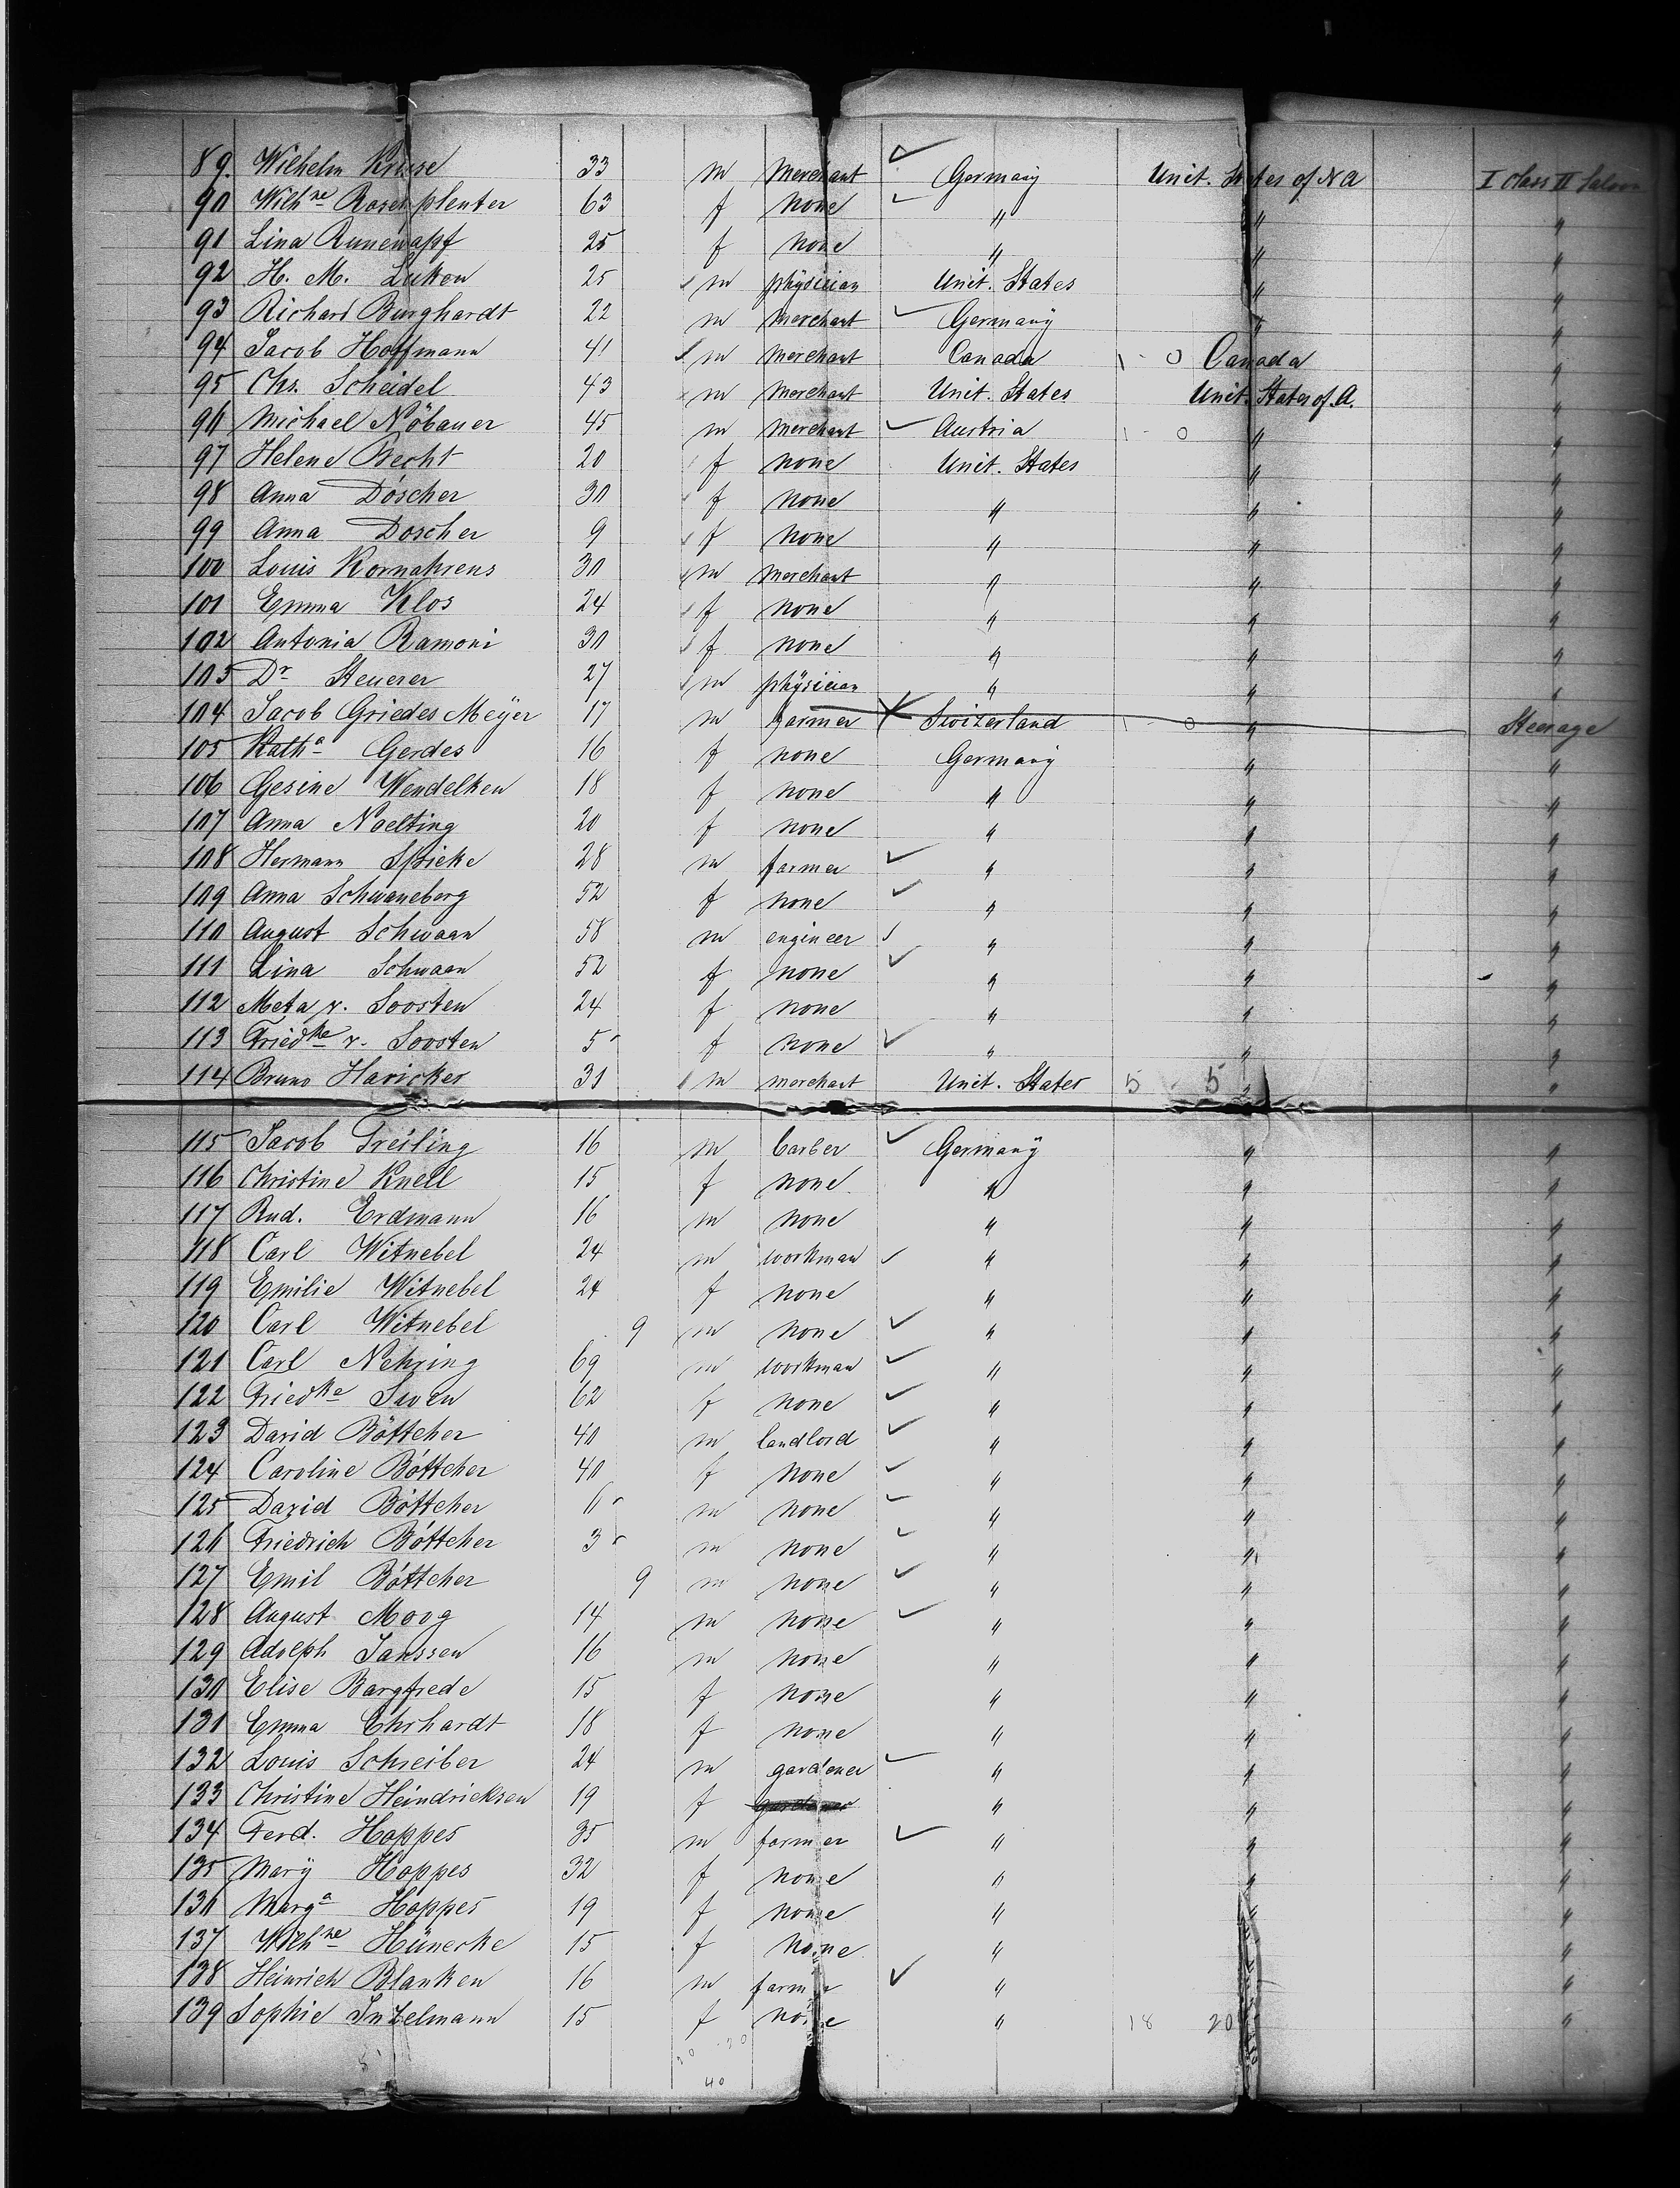 89. Wilhelm Kruse 33 m Merchant Germany Unit. States of NA I class II Saloon
90 Wilhne Rosenplenter 63 f None " " "
91 Lina 25 f None " " "
92 H. M. Lukow 25 m physician Unit. States " "
93 Richard Burghardt 22 m Merchant Germany " "
94 Jacob Hoffmann 41 m Merchant Canada 1 - 0 Canada "
95 Chs. Scheidel 43 m Merchant Unit. States Unit. States of A. "
96 Michael Nöbauer 45 m Merchant Austria 1 - 0 " "
97 Helene Becht 20 f None Unit. States " "
98 Anna Döscher 30 f None " " "
99 Anna Doscher 9 f None " " "
100 Louis Kornahrens 30 m Merchant " " "
101 Emma Klos 24 f None " " "
102 Antonia Ramoni 30 f None " " "
103 Dr Steuerer 27 m physician " " "
104 Jacob Griedes Meÿer 17 m farmer Swizerland 1 - 0 " Steerage
105 Katha Gerdes 16 f none Germany " "
106 Gesine Wendelken 18 f None " " "
107 Anna Noelting 20 f None " " "
108 Hermann Spieke 28 m farmer " " "
109 Anna Schwaneberg 52 f None " " "
110 August Schwaan 58 m engineer " " "
111 Lina Schwaan 52 f None " " "
112 Meta v. Soosten 24 f None " " "
113 Friedke v. Soosten 5 f None " " "
114 Bruno Haricker 31 m merchant Unit. States 5 - 5 " "
115 Jacob Treiling 16 m barber Germanÿ " "
116 Christine Knell 15 f None " " "
117 Rud. Erdmann 16 m None " " "
118 Carl Witnebel 24 m workman " " "
119 Emilie Witnebel 24 f None " " "
120 Carl Witnebel 9 m None " " "
121 Carl Nehring 69 m workman " " "
122 Friedke Swen 62 f None " " "
123 David Böttcher 40 m landlord " " "
124 Caroline Böttcher 40 f None " " "
125 David Böttcher m None " " "
126 Friedrich Böttcher 3 m None " " "
127 Emil Böttcher 9 m None " " "
128 August Moog 14 m None " " "
129 Adolph Janssen 16 m None " " "
130 Elise Bargfrede 15 f None " " "
131 Emma Ehrhardt 18 f None " " "
132 Louis Schreiber 24 m gardener " " "
133 Christine Heindricksen 19 f gardener " " "
134 Ferd. Hoppes 35 m farmer " " "
135 Marÿ Hoppes 32 f None " " "
136 Marga Hoppes 19 f None " " "
137 Wilhne Hünecke 15 f None " " "
138 Heinrich Blanken 16 m farmer " " "
139 Sophie Inzelmann 15 f None " 18 20 "
20 - 20
40